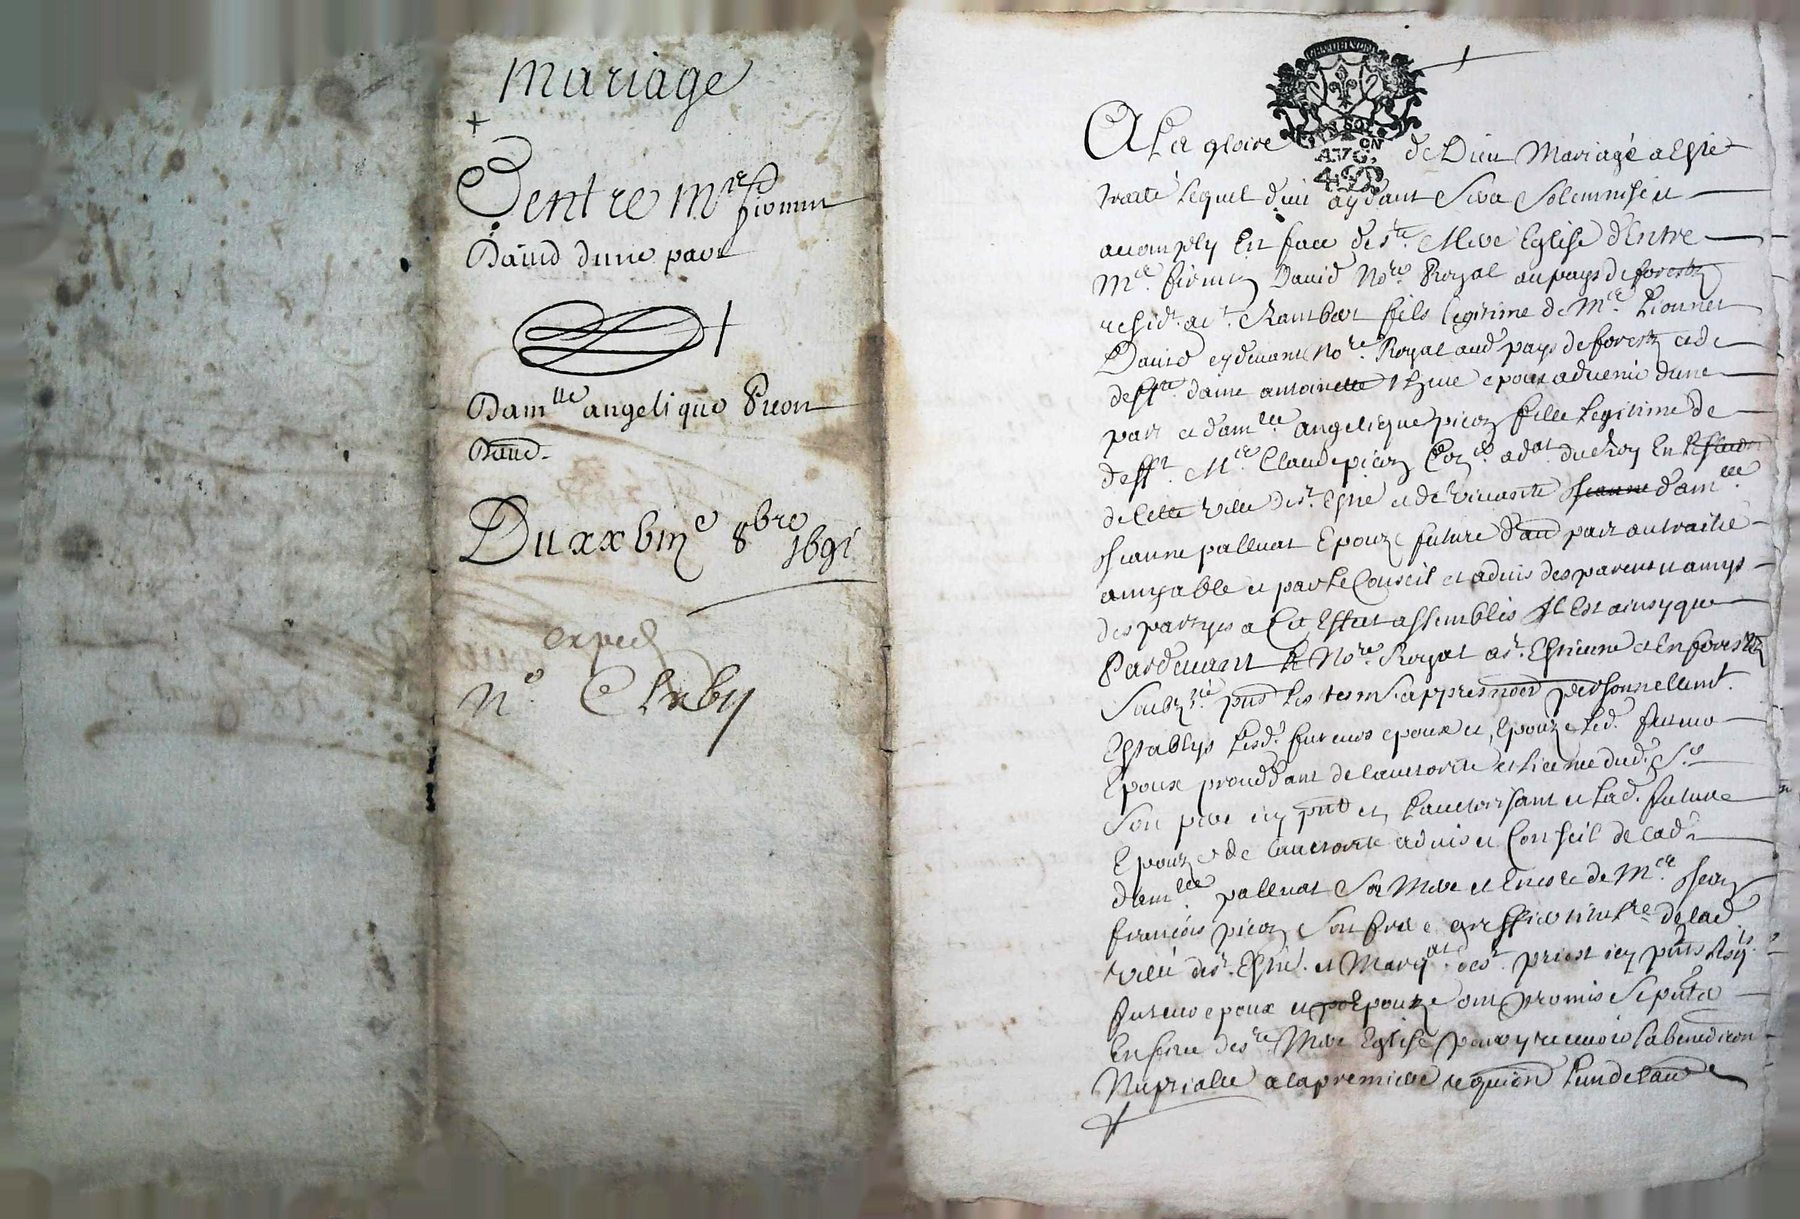 Mariage
Dentre Mre fiomin
Dauid dune part
Damlle angelique Picon
Dau͠e.
Du xxbiije 8bre
1691
exped
N° Chaby
A La gloire de Dieu Mariage a Esté
traité Lequel dieu aydant sera solemnisé et
accomply En face de ste Mere Eglise d'Entre
Me David Nore Royal au pays de forestz
resid. a st. Rambert fils legitime de Me
David cydeuant Nore Royal aud pays de forestz et de
deffte dame antoinette epoux aduenir dune
part et damlle angelique picon fille legitime de
defft Me Claude picon adat du Roy En
de cette ville de st. Esne et de viuante Jeanne damlle
Jeanne palluat Epouze future d'au part au traitté
amyable et par le Conseil et aduis des parens et amys
des partyes a Cet Effect assemblés Il Est ainsy que
Pardeuant le Nore Royal a st. Estienne et En forestz
soubzné pnts Les tesms appres nommes personnellemt.
Establys Lesd. futeurs epoux et Epouze Led. futeur
Epoux proceddant de lauctorité et licence dud. sr
son pere icy pnt et Lauctorisant et Lad. future
Epouze de lauctorité aduis et Conseil de lad.
damlle palluat sa Mere et Encore de Mre Jean
françois picon son frere greffier de lad
ville de st. Esne. et icy pnts Lesds.
futeurs epoux et Epouze ont promis se pnter
En face de ste Mere Eglise pour y receuoir la benediction
Nuptialle a la premiere requi͠on Lun de lau͠e